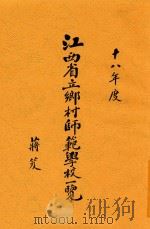 十八年度
江西省立鄉村師範學校一覽
蔣笈